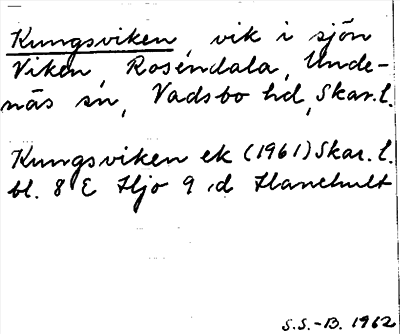 Kungsviken, vik i sjön
Viken, Rosendala, Unde-
näs sn, Vadsbo hd, Skar. l.
Kungsviken ek (1961) Skar. l.
bl. 8 E Hjo 9 d Hanehult
S.S.-B. 1962